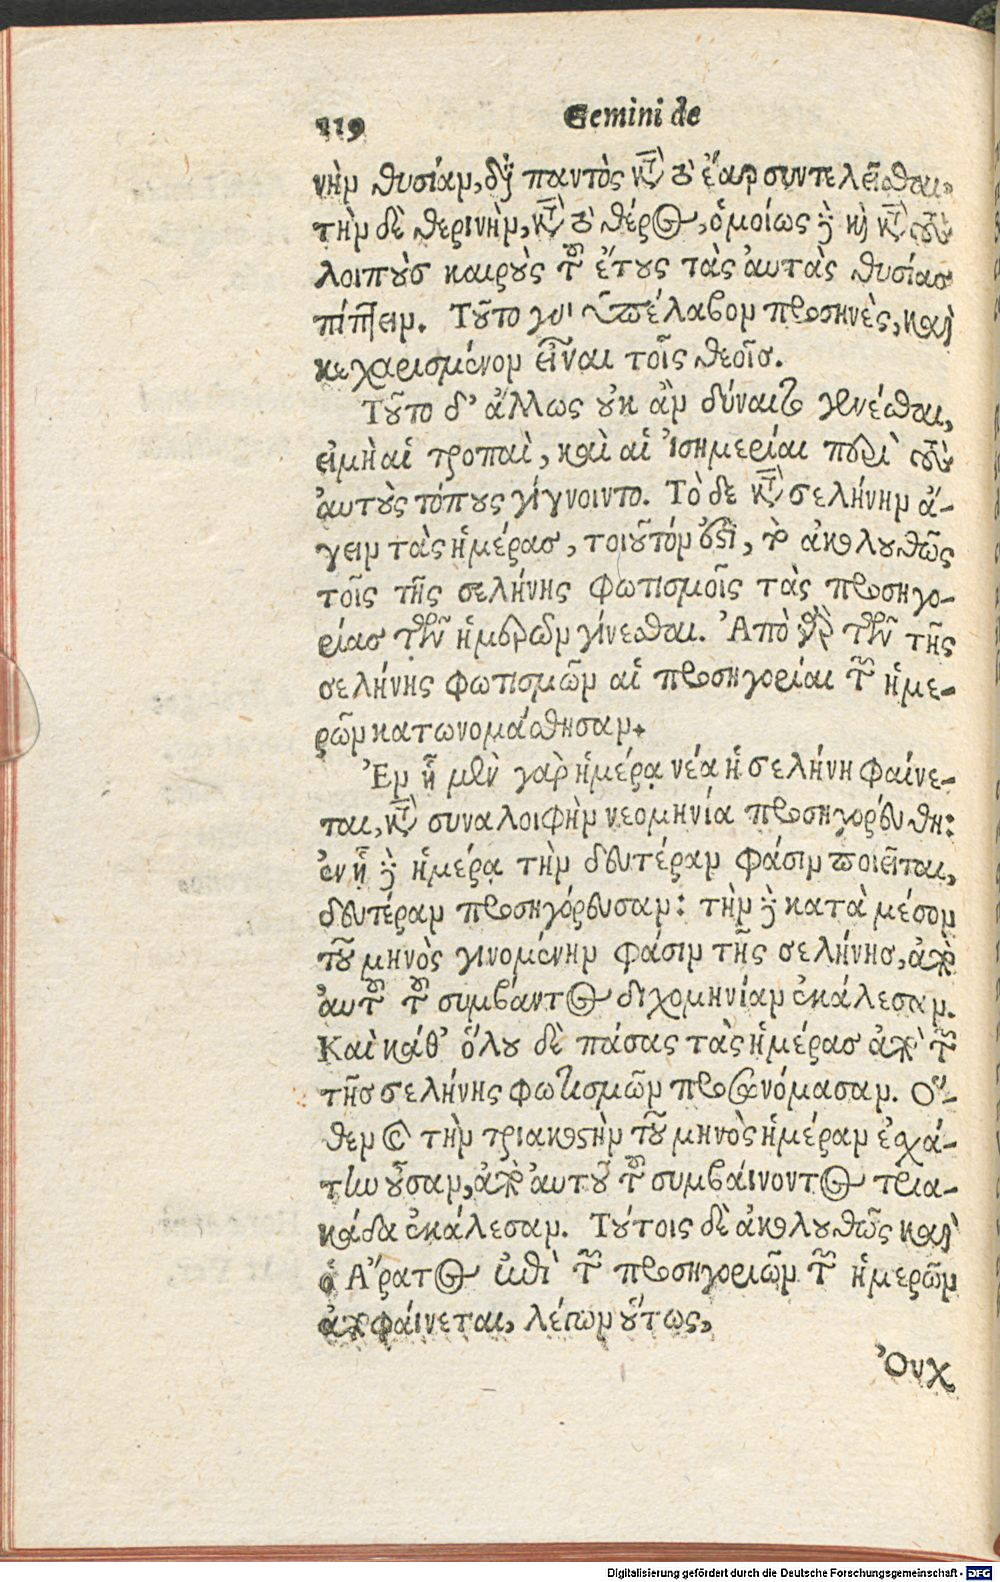 119 Gemini de
νὴν θυσίαν, διὰ παντὸς κατὰ τὸ ἔαρ συντελεῖσθαι.
τὴν δὲ θερινὴν, κατὰ τὸ θέρος, ὁμοίως δὲ καὶ κατὰ τοὺς
λοιποὺς καιροὺς τοῦ ἔτους τὰς αὐτὰς θυσίας
πίπτειν. Τοῦτο γὰρ ὑπέλαβον προσηνὲς, καὶ
κεχαρισμένον εἶναι τοῖς θεοῖς.
Τοῦτο δ' ἄλλως οὐκ ἂν δύναιτο γενέσθαι,
εἰμὴ αἱ τροπαὶ, καὶ αἱ ἰσημερίαι περὶ τοὺς
αὐτοὺς τόπους γίγνοιντο. Τὸ δε κατὰ σελήνην ἄ-
γειν τὰς ἡμέρας, τοιοῦτόν ἐστι, τὸ ἀκολουθῶς
τοῖς τῆς σελήνης φωτισμοῖς τὰς προσηγο-
ρίας τῶν ἡμερῶν γίνεσθαι. Ἀπὸ γὰρ τῶν τῆς
σελήνης φωτισμῶν αἱ προσηγορίαι τῶν ἡμε-
ρῶν κατωνομάσθησαν.
Ἐν ᾗ μὲν γὰρ ἡμέρᾳ νέα ἡ σελήνη φαίνε-
ται, κατὰ συναλοιφὴν νεομηνία προσηγορεύθη:
ἐν ᾗ δὲ ἡμέρᾳ τὴν δευτέραν φάσιν ποιεῖται,
δευτέραν προσηγόρευσαν: τὴν δὲ κατὰ μέσον
τοῦ μηνὸς γινομένην φάσιν τῆς σελήνης, ἀπὸ
αὐτοῦ τοῦ συμβάντος διχομηνίαν ἐκάλεσαν.
Καὶ κάθ' ὅλου δὲ πάσας τὰς ἡμέρας ἀπὸ τῶν
τῆς σελήνης φωτισμῶν προσωνόμασαν. Ὅ-
θεν καὶ τὴν τριακοστὴν τοῦ μηνὸς ἡμέραν ἐσχά-
την οὖσαν, ἀπὸ αὐτοῦ τοῦ συμβαίνοντος τρια-
κάδα ἐκάλεσαν. Τούτοις δὲ ἀκολουθῶς καὶ
ὁ Ἄρατος ἐπὶ τῶν προσηγοριῶν τῶν ἡμερῶν
ἀποφαίνεται, λέγων οὕτως,
Ὀυχ
Digitalisierung gefördert durch die Deutsche Forschungsgemeinschaft - DFG